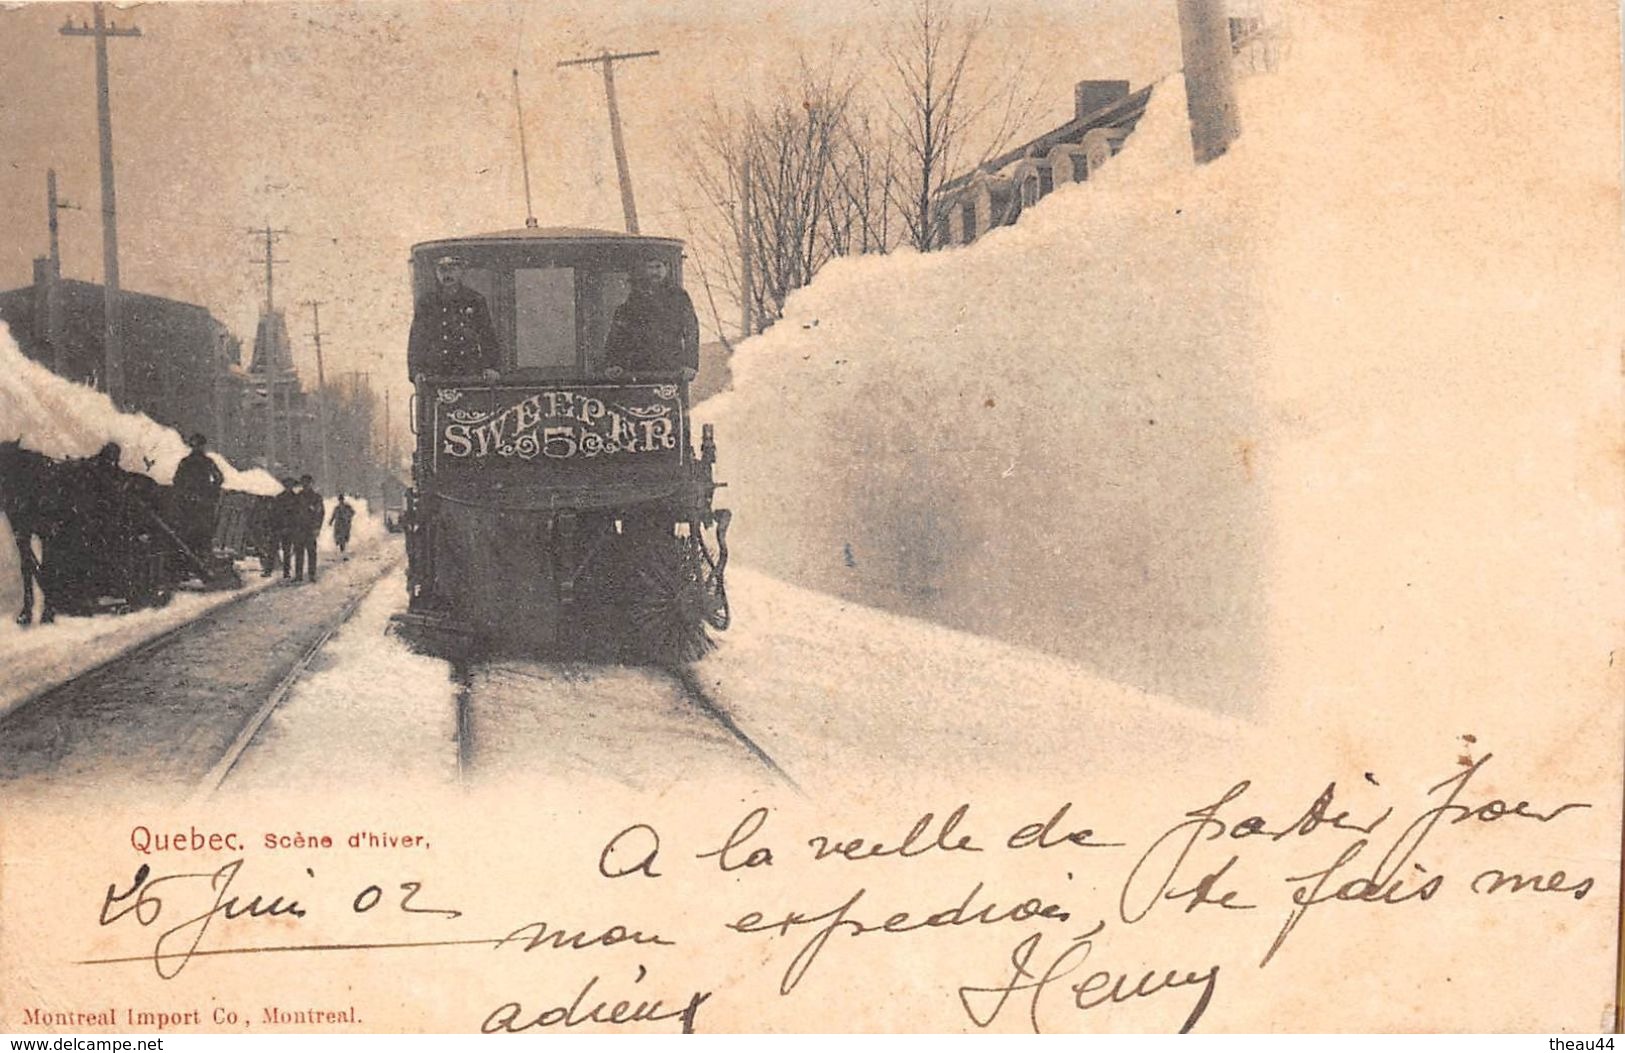 SWEEPER
5
Quebec. Scène d'hiver,
A la veille de partir pour
26 Juin 02
mon expedition, te fais mes
adieux Henry
Montreal Import Co, Montreal.
www.delcampe.net
theau44